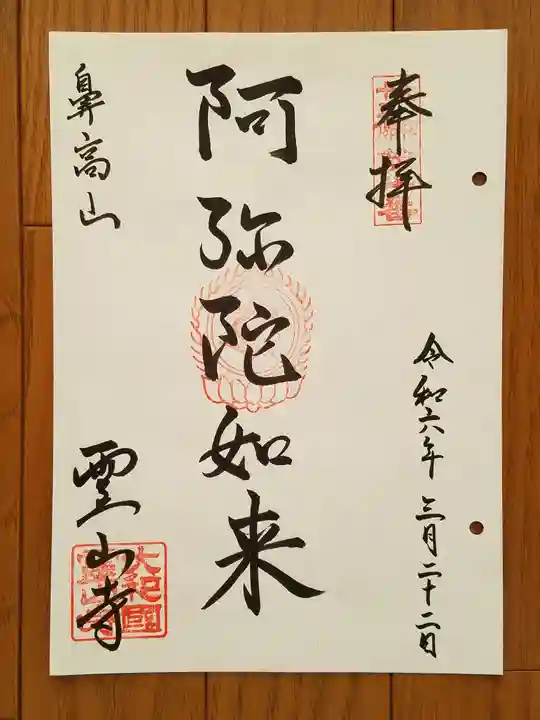 奉拝
令和六年三月二十二日
阿弥陀如来
鼻高山
霊山寺